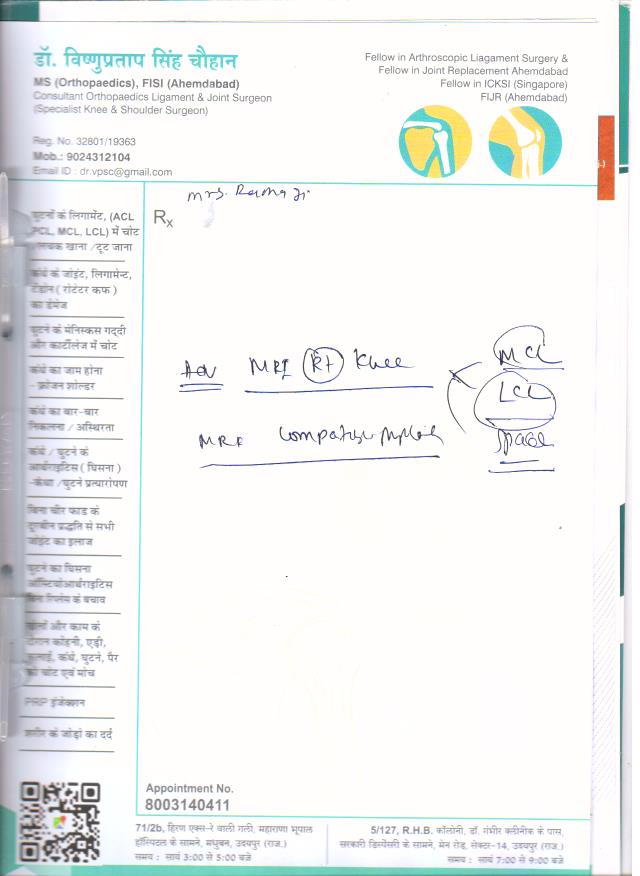 डॉ. विष्णुप्रताप सिंह चौहान
MS (Orthopaedics), FISI (Ahemdabad)
Consultant Orthopaedics Ligament & Joint Surgeon
(Specialist Knee & Shoulder Surgeon)
Reg. No. 32801/19363
Mob.: 9024312104
Email ID : dr.vpsc@gmail.com
Fellow in Arthroscopic Liagament Surgery &
Fellow in Joint Replacement Ahemdabad
Fellow in ICKSI (Singapore)
FIJR (Ahemdabad)
Mrs. Rama Ji
Rx
घुटनों के लिगामेंट, (ACL
PCL, MCL, LCL) में चोट
लचक खाना /टूट जाना
कंधे के जोइंट, लिगामेन्ट,
टेंडोन ( रोटेटर कफ )
का डेमेज
घुटने के मेनिस्कस गद्दी
और कार्टीलेज में चोट
कंधे का जाम होना
- फ्रोजन शोल्डर
कंधे का बार-बार
निकलना / अस्थिरता
कंधे / घुटने के
आर्थराइटिस ( घिसना )
-कंधा /घुटने प्रत्यारोपण
बिना चीर फाड के
दूरबीन प्रद्धति से सभी
जोईंट का इलाज
घुटने का घिसना
ऑस्टियोआर्थराइटिस
बिना रिप्लेस के बचाव
खेलों और काम के
दौरान कोहनी, एड़ी,
कलाई, कंधे, घुटने, पैर
की चोट एवं मोच
PRP इंजेक्शन
शरीर के जोड़ों का दर्द
Adv MRI Rt Knee
MCL
LCL
space
MRI
Appointment No.
8003140411
71/2b, हिरण एक्स-रे वाली गली, महाराणा भूपाल
हॉस्पिटल के सामने, मधुबन, उदयपुर (राज.)
समय : सायं 3:00 से 5:00 बजे
5/127, R.H.B. कॉलोनी, डॉ. गंभीर क्लीनीक के पास,
सरकारी डिस्पेंसरी के सामने, मेन रोड, सेक्टर-14, उदयपुर (राज.)
समय : सायं 7:00 से 9:00 बजे